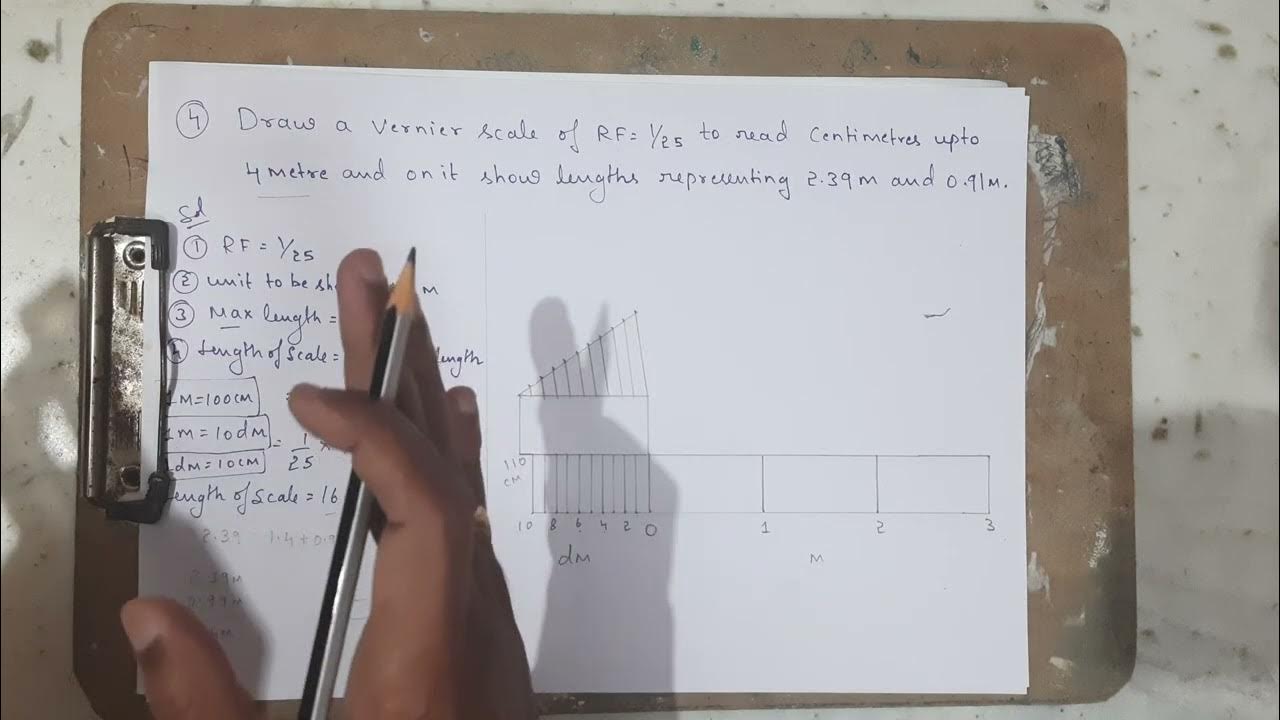 4 Draw a Vernier scale of RF = 1/25 to read Centimetres upto
4 metre and on it show lengths representing 2.39m and 0.91m.
Sol
1 RF = 1/25
2 unit to be sh M
3 Max length =
4 Length of Scale = length
1M = 100CM =
1m = 10dm = 1/25 ×
1dm = 10cm
Length of Scale = 16
2.39 1.4 + 0.9
2.39M
110
CM
10 8 6 4 2 0 1 2 3
dM M